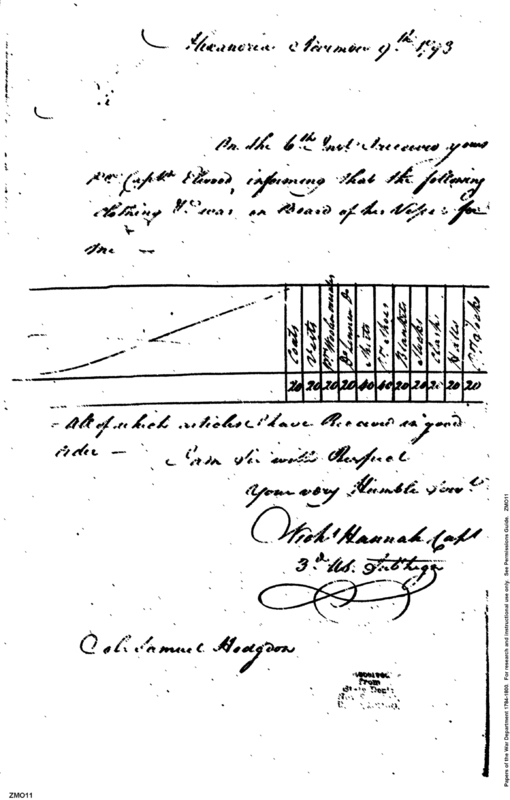 Alexandria November 9th 1793
Sir
On the 6th Inst I received yours
Pr Captn Elwood, informing that the following
clothing &c was on Board of his Vessel for
me —
Coats Vests Pr Woolen Do Linnen Do Shirts Pr Shoes Blankets Stocks Clasps Hatts Pr Socks
20 20 20 20 40 40 20 20 20 20 20
- All of which articles I have Received in good
order —
I am Sir with Respect
Your very Humble Servt
Nichs Hannah Capt
3d US. Sub Legn
Col. Samuel Hodgdon
Received
from
State Dept
ZMO11
Papers of the War Department 1784-1800. For research and instructional use only. See Permissions Guide. ZMO11